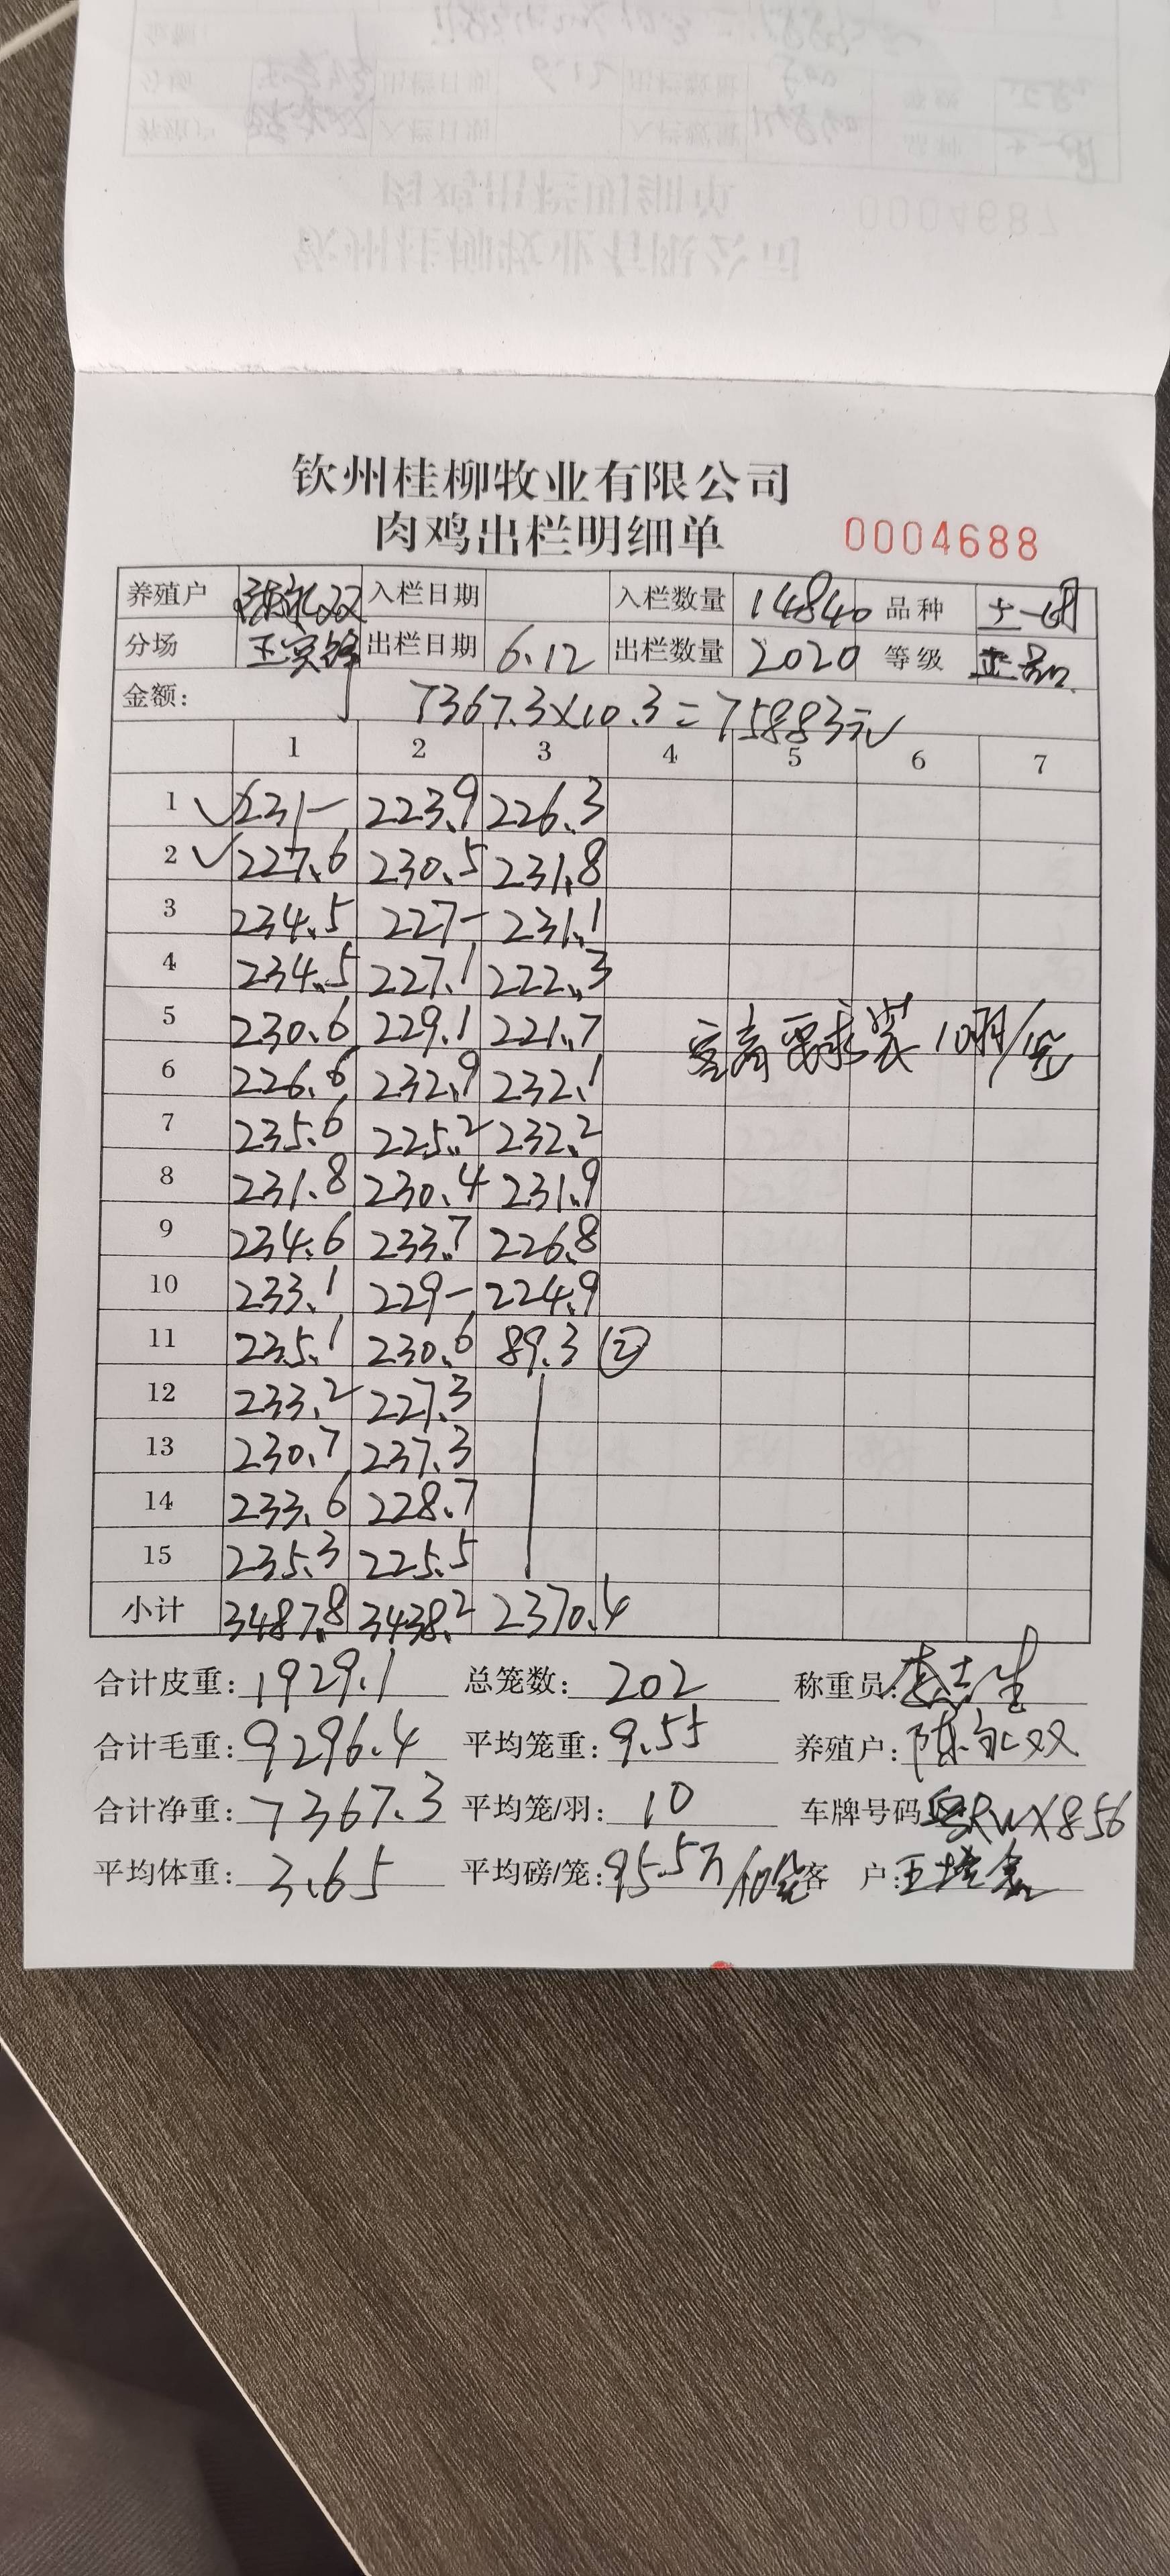 钦州桂柳牧业有限公司
肉鸡出栏明细单 0004688
养殖户 陈永双 入栏日期 入栏数量 14840 品种 土一
分场 王实锋 出栏日期 6.12 出栏数量 2020 等级 正品
金额: 7367.3×10.3=75883元
1 2 3 4 5 6 7
1 231- 223.9 226.3
2 227.6 230.5 231.8
3 234.5 227- 231.1
4 234.5 227.1 222.3
5 230.6 229.1 221.7 客商要求装10羽/笼
6 226.6 232.9 232.1
7 235.6 225.2 232.2
8 231.8 230.4 231.9
9 234.6 233.7 226.8
10 233.1 229- 224.9
11 235.1 230.6 89.3 ②
12 233.2 227.3
13 230.7 237.3
14 233.6 228.7
15 235.3 225.5
小计 3487.8 3438.2 2370.4
合计皮重: 1929.1 总笼数: 202 称重员: 李志生
合计毛重: 9296.4 平均笼重: 9.55 养殖户: 陈永双
合计净重: 7367.3 平均笼/羽: 10 车牌号码 粤RWX856
平均体重: 3.65 平均磅/笼: 95.5斤/10笼 客 户: 王